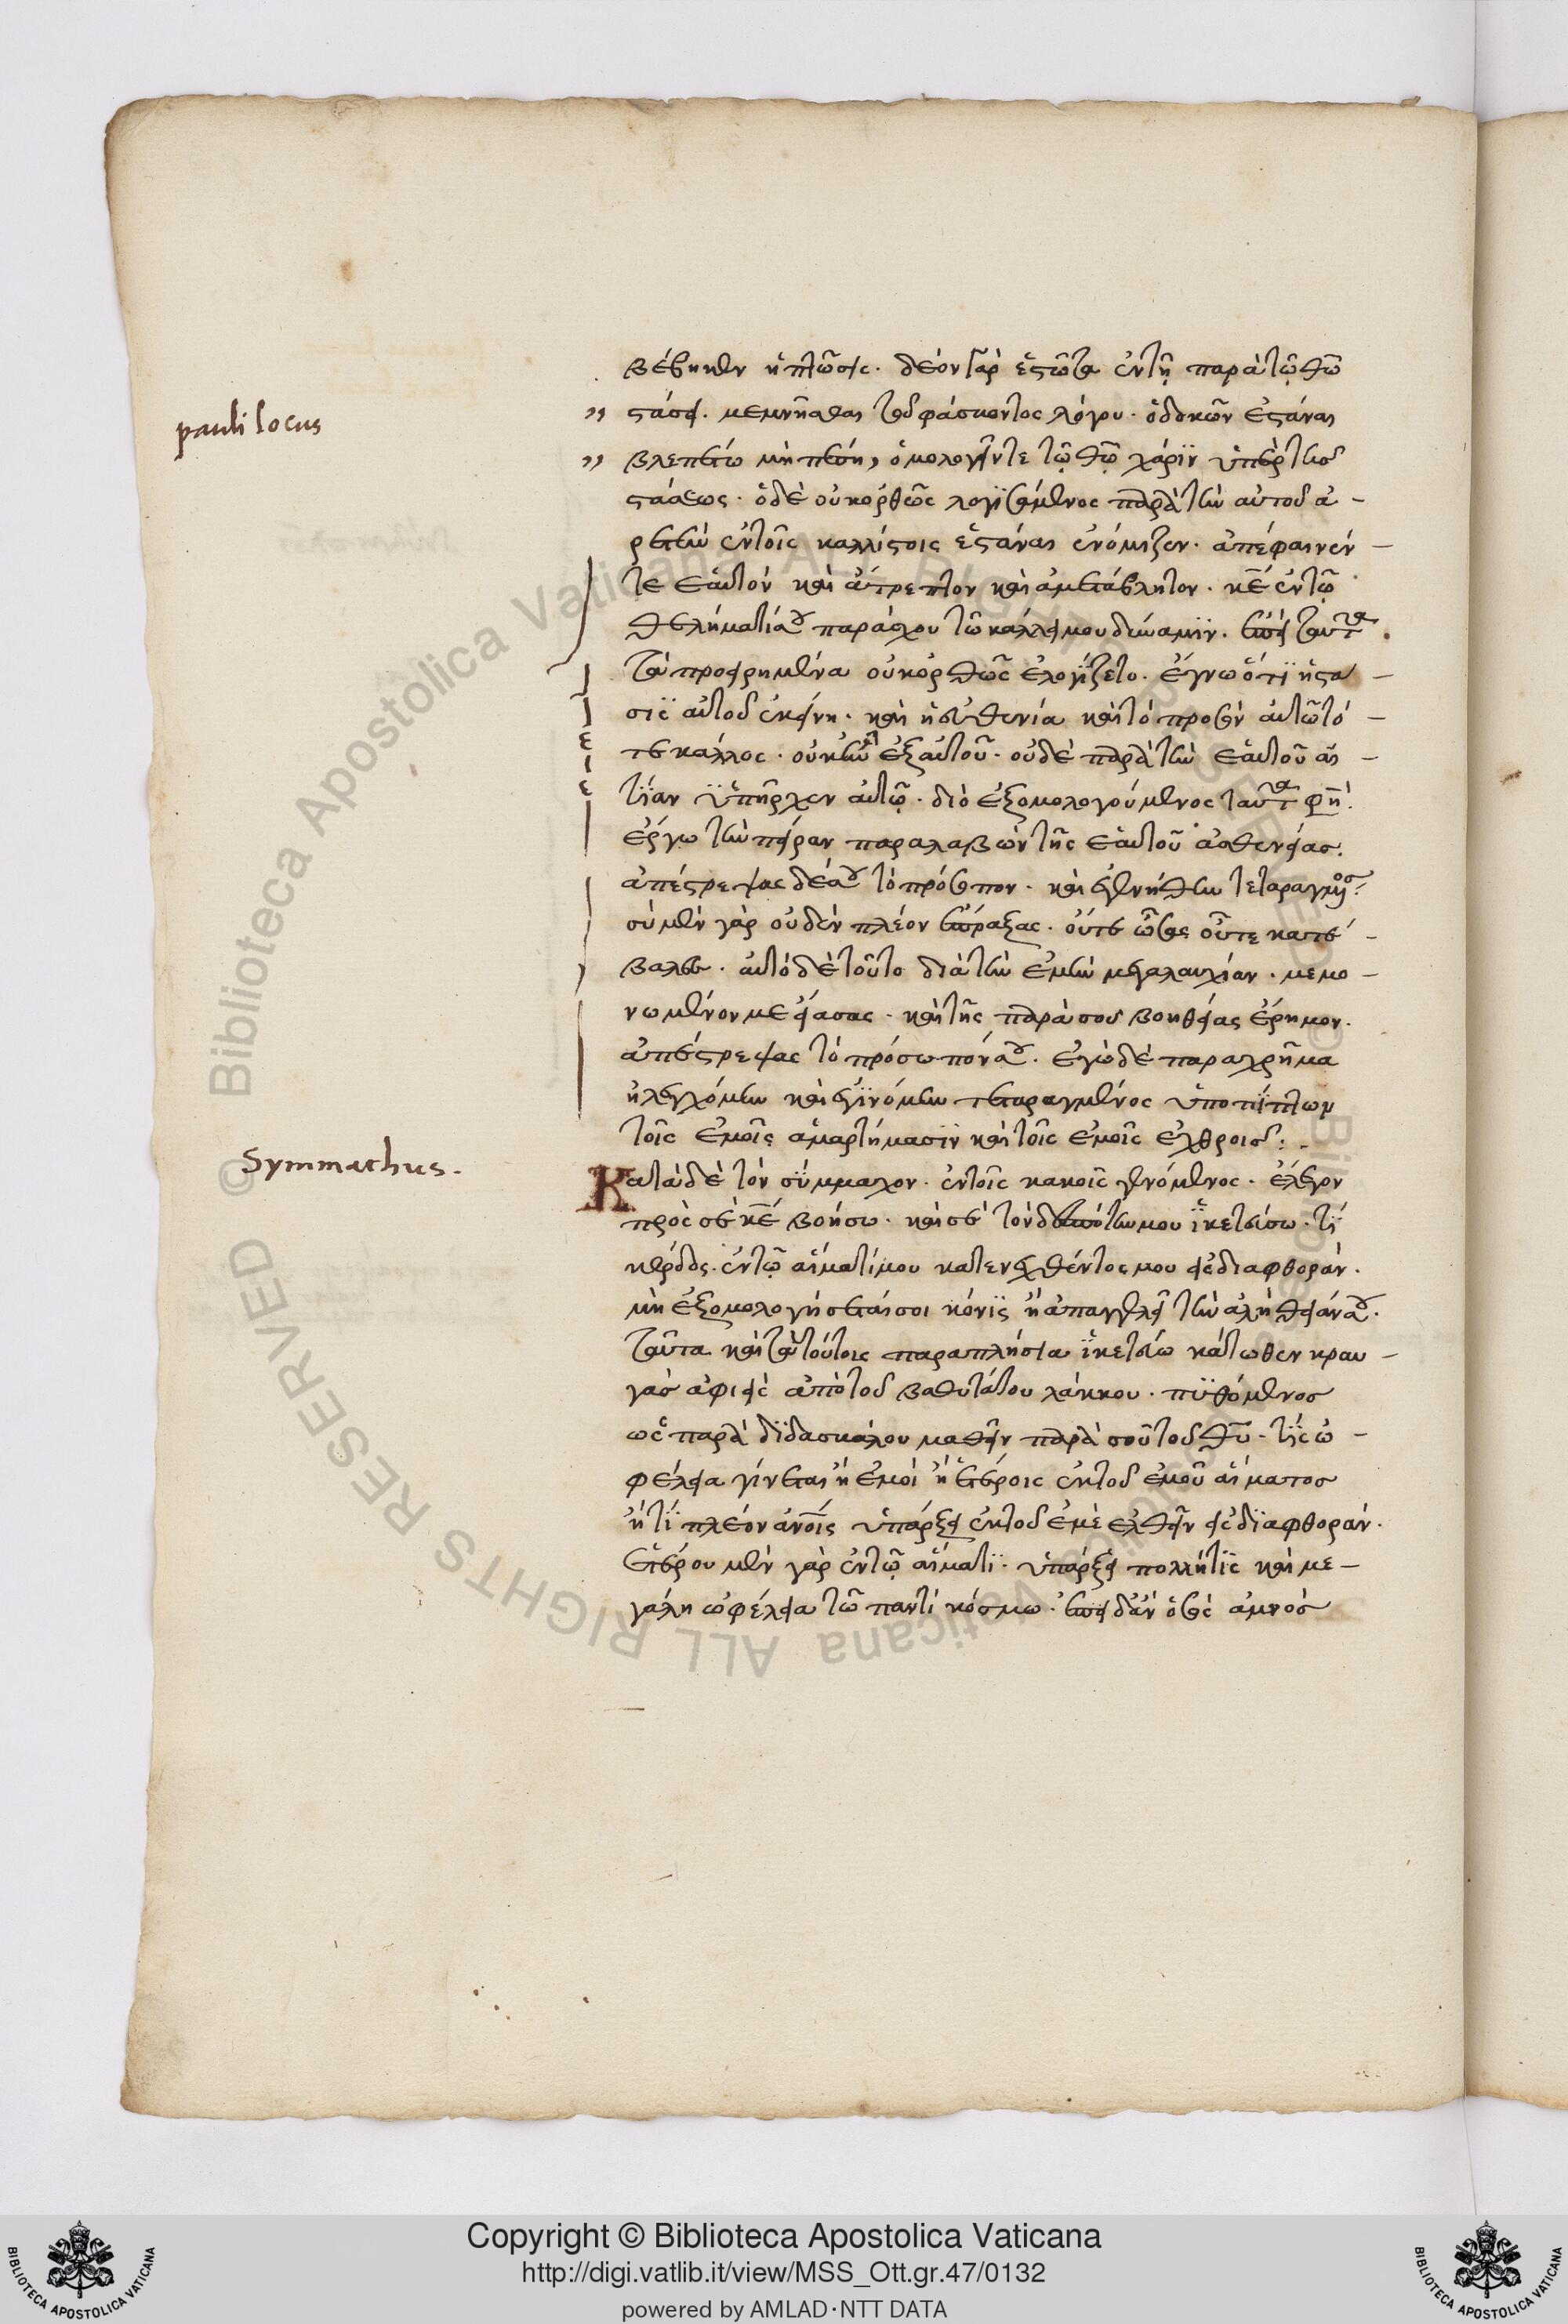 βέβηκεν ἡ πτῶσις· δέον γὰρ ἑστῶτα ἐν τῇ παρὰ τῷ θῶ
pauli locus
στάσει· μεμνῆσθαι τοῦ φάσκοντος λόγου· ὁ δοκῶν ἑστάναι
βλεπέτω μὴ πέσῃ, ὁμολογεῖν τε τῷ θῶ χάριν ὑπὲρ τῆς
στάσεως· ὁ δὲ οὐκ ὀρθῶς λογισάμενος παρὰ τὴν αὐτοῦ ἀ-
ρετὴν ἐν τοῖς καλλίστοις ἑστάναι ἐνόμιζεν· ἀπέφαινέν
τε ἑαυτὸν καὶ ἄτρεπτον καὶ ἀμετάβλητον· κε ἐν τῷ
θελήματί σου παράσχου τῷ κάλλει μου δύναμιν· ἐπεὶ ταῦτα
τὰ προειρημένα οὐκ ὀρθῶς ἐλογίζετο· ἔγνω ὅτι ἡ στά-
σις αὐτοῦ ἐκείνη· καὶ ἡ εὐθενία καὶ τὸ προσὸν αὐτῷ τό-
τε κάλλος· οὐκ ἦν ἐξ αὐτοῦ· οὐδὲ παρὰ τὴν ἑαυτοῦ αἰ-
τίαν ὑπῆρχεν αὐτῷ· διὸ ἐξομολογούμενος ταῦτα φησὶ·
ἔργω τὴν πεῖραν παραλαβὼν τῆς ἑαυτοῦ ἀσθενείας·
ἀπέστρεψας δέ σου τὸ πρόσωπον· καὶ ἐγενήθην τεταραγμένος·
σὺ μὲν γὰρ οὐδὲν πλέον ἔπραξας· οὔτε ὦσας οὔτε κατέ-
βαλες· αὐτὸ δὲ τοῦτο διὰ τὴν ἐμὴν μεγαλαυχίαν· μεμο-
νωμένον με εἴασας· καὶ τῆς παρὰ σοῦ βοηθείας ἔρημον·
ἀπέστρεψας τὸ πρόσωπόν σου· ἐγὼ δὲ παραχρῆμα
ἠλεγχόμην καὶ ἐγινόμην τεταραγμένος ὑποπίπτων
τοῖς ἐμοῖς ἁμαρτήμασιν καὶ τοῖς ἐμοῖς ἐχθροῖς:
Symmachus.
Κατὰ δὲ τὸν σύμμαχον· ἐν τοῖς κακοῖς γενόμενος· ἔλεγον
πρὸς σὲ κε βοήσω· καὶ σὲ τὸν δεσπότην μου ἱκετεύσω· τί
κέρδος ἐν τῷ αἵματί μου κατενεχθέντος μου εἰς διαφθοράν·
μὴ ἐξομολογήσεταί σοι κόνις ἢ ἀπαγγελεῖ τὴν ἀλήθειάν σου·
ταῦτα καὶ τὰ τούτοις παραπλήσια ἱκετεύω κάτωθεν κραυ-
γὰς ἀφιεὶς ἀπὸ τοῦ βαθυτάτου λάκκου· πυθόμενος
ὡς παρὰ διδασκάλου μαθεῖν παρὰ σοῦ τοῦ θυ· τίς ὠ-
φέλεια γίνεται ἢ ἐμοὶ ἢ ἑτέροις ἐκ τοῦ ἐμοῦ αἵματος
ἢ τί πλέον ἀνοις ὑπάρξει ἐκ τοῦ ἐμὲ ἐλθεῖν εἰς διαφθοράν·
ἑτέρου μὲν γὰρ ἐν τῷ αἵματι· ὑπάρξει πολλή τις καὶ με-
γάλη ὠφέλεια τῷ παντὶ κόσμω· ἐπειδὰν ὁ εἷς ἀμνὸς
Copyright © Biblioteca Apostolica Vaticana
http://digi.vatlib.it/view/MSS_Ott.gr.47/0132
powered by AMLAD·NTT DATA